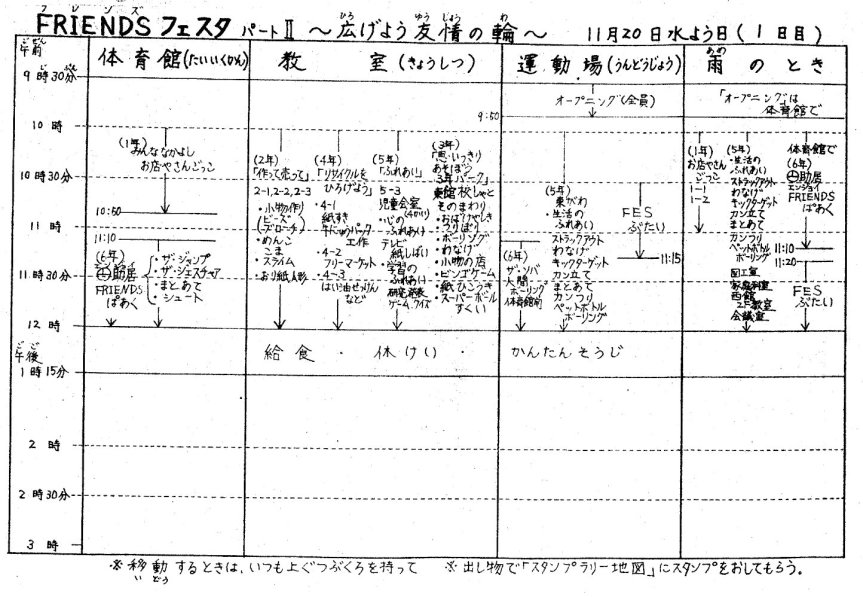 FRIENDS フェスタ パートⅡ ～広げよう友情の輪～ 11月20日水よう日(1日目)
フレンズ
ひろ ゆう じょう わ
ごぜん
午前
体育館(たいいくかん)
教室(きょうしつ)
運動場(うんどうじょう)
あめ
雨のとき
9時30分
じ ぷん
オープニング(全員)
「オープニング」は
体育館で
9:50
10時
(1年)
みんななかよし
お店やさんごっこ
10:50
11:10
(6年)
エンジョイ
FRIENDS
ぱあく
・ザ・ジャンプ
・ザ・ジェスチャア
・まとあて
・シュート
(2年)
「作って売って」
2-1,2-2,2-3
・小物作り
(ビーズ
ブローチ)
・めんこ
こま
・スライム
・おり紙人形
(4年)
「リサイクルを
ひろげよう」
・4-1
紙すき
牛にゅうパック
工作
・4-2
フリーマーケット
・4-3
はい油せっけん
など
(5年)
「ふれあい」
5-3
児童会室
(4かい)
・心の
ふれあい
テレビ
紙しばい
・学習の
ふれあい
研究発表
ゲーム,クイズ
(3年)
「思いっきり
あそぼう
3年パーク」
東館校しゃと
ものまわり
・おばけやしき
・つりぼり
・ボーリング
・わなげ
・小物の店
・ビンゴゲーム
・紙ひこうき
・スーパーボール
すくい
(6年)
ザ・ソバ
人間
ボーリング
体育館前
(5年)
東がわ
・生活の
ふれあい
ストラックアウト
わなげ
キックターゲット
カン立て
まとあて
カンつり
ペットボトル
ボーリング
FES
ぶたい
11:15
(1年)
お店やさん
ごっこ
1-1
1-2
(5年)
・生活の
ふれあい
ストラックアウト
わなげ
キックターゲット
カン立て
まとあて
カンつり
ペットボトル
ボーリング
図工室
家庭科室
西館
2F教室
会議室
体育館で
(6年)
エンジョイ
FRIENDS
ぱあく
11:10
11:20
FES
ぶたい
10時30分
11時
11時30分
12時
給食・休けい・かんたんそうじ
ごご
午後
1時15分
2時
2時30分
3時
※移動するときは、いつも上ぐつぶくろを持って ※出し物で「スタンプラリー地図」にスタンプをおしてもらう。
い どう